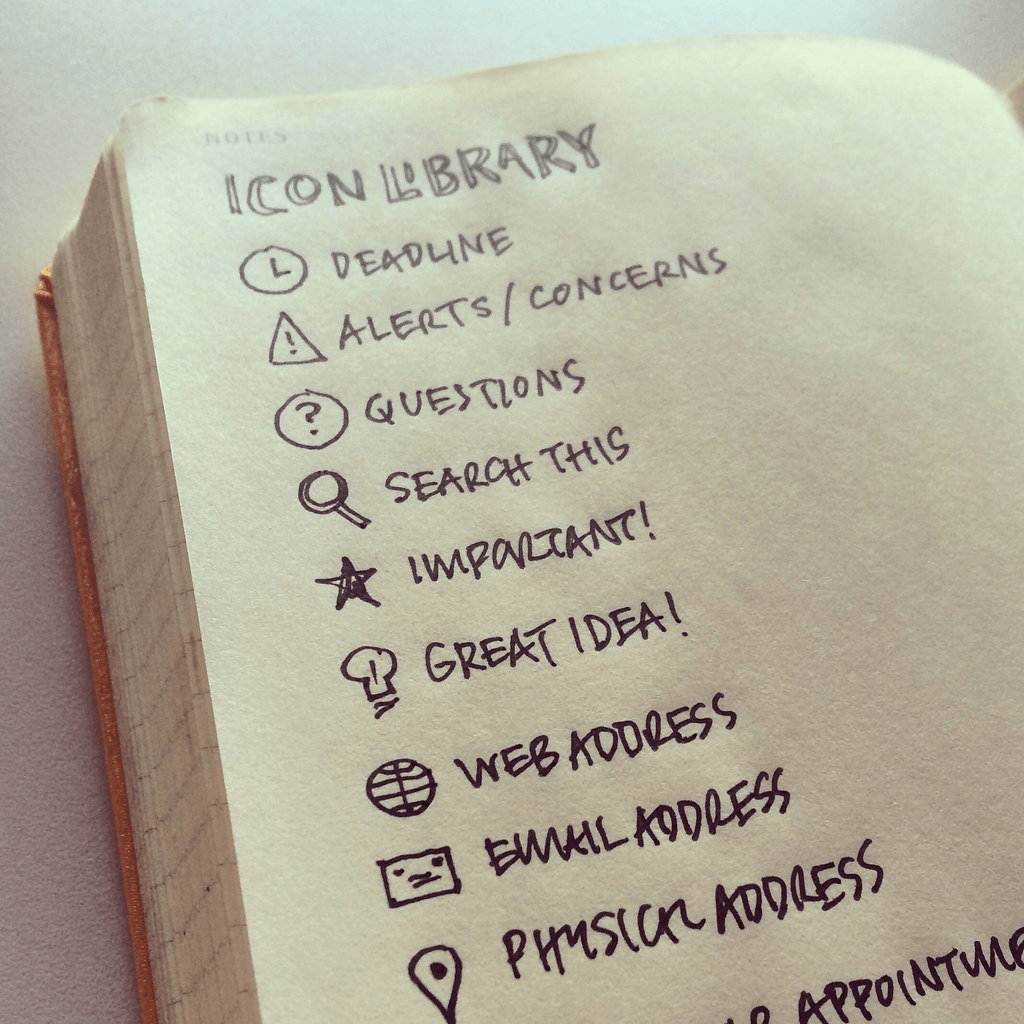 NOTES
ICON LIBRARY
DEADLINE
ALERTS/CONCERNS
QUESTIONS
SEARCH THIS
IMPORTANT!
GREAT IDEA!
WEB ADDRESS
EMAIL ADDRESS
PHYSICAL ADDRESS